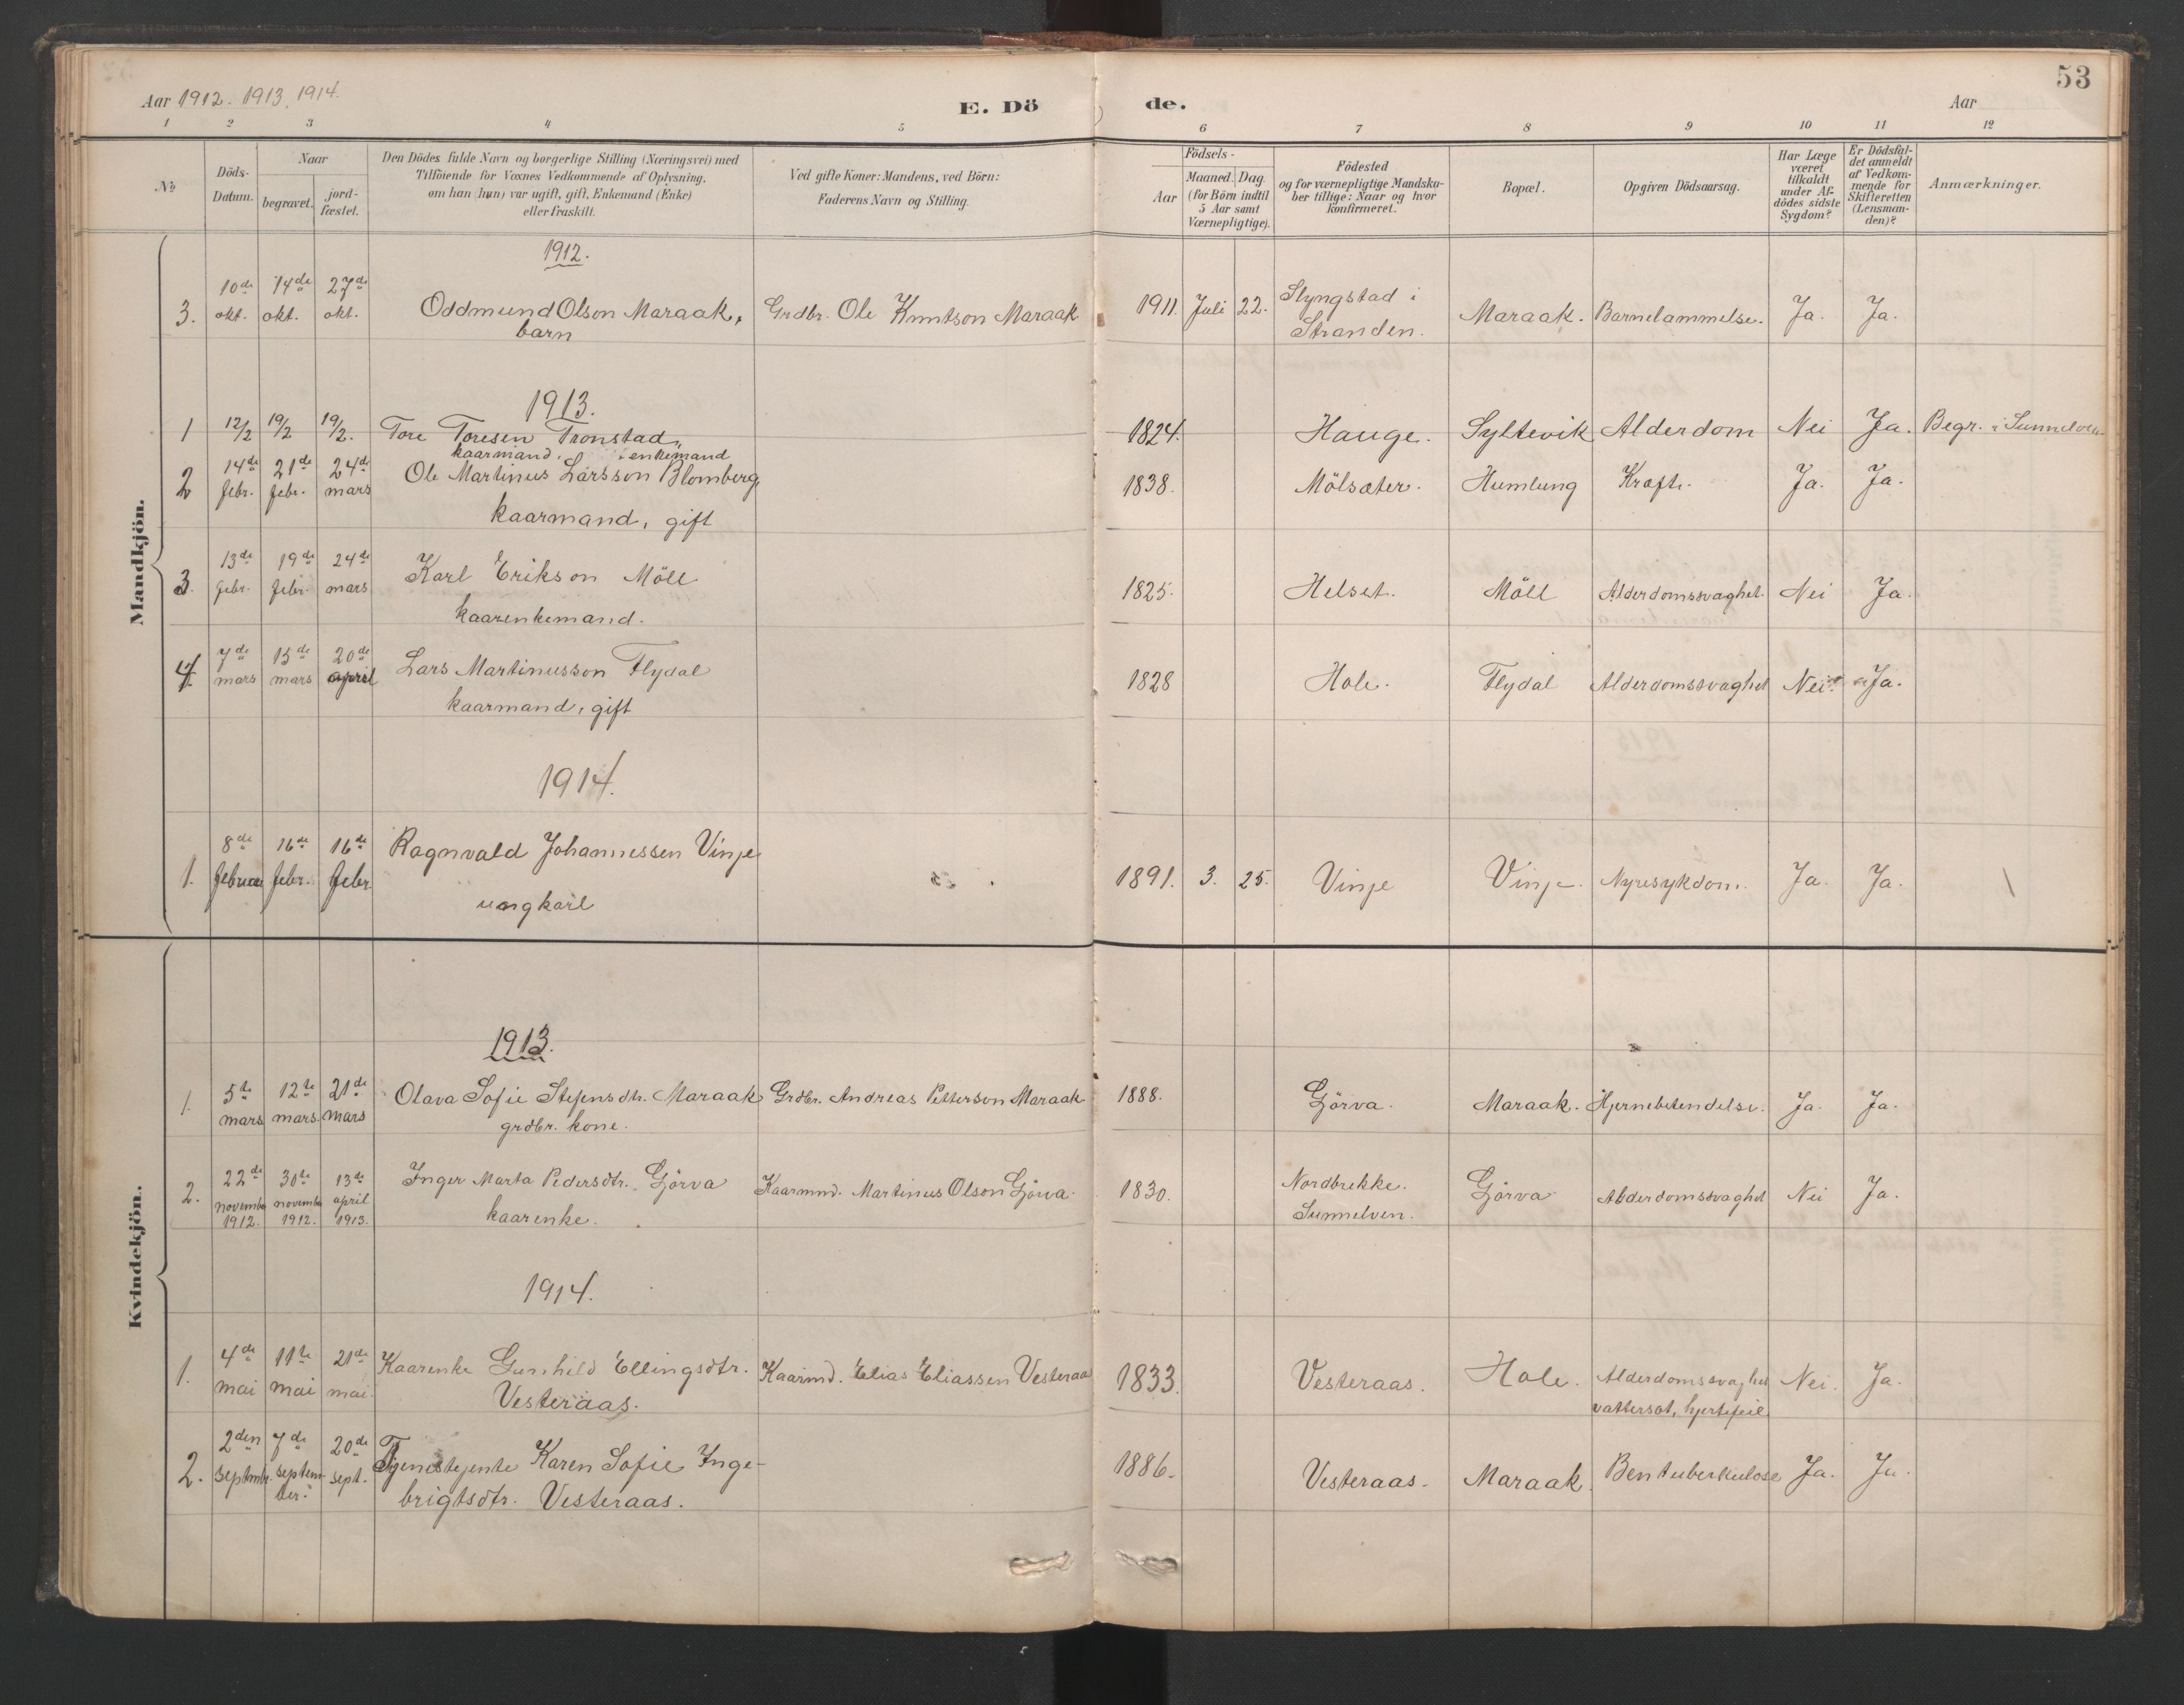 53
Aar 1912. 1913, 1914.
E. Dö de.
Aar
1 2 3 4 5 6 7 8 9 10 11 12
No
Döds-Datum.
Naar
begravet.
jord-fæstet.
Den Dödes fulde Navn og borgerlige Stilling (Næringsvei) med
Tilföiende for Voxnes Vedkommende af Oplysning,
om han (hun) var ugift, gift, Enkemand (Enke)
eller fraskilt.
Ved gifte Koner: Mandens, ved Börn:
Faderens Navn og Stilling.
Födsels-
Aar
Maaned. Dag.
(for Börn indtil
5 Aar samt
Værnepligtige).
Födested
og for værnepligtige Mandska-
ber tillige: Naar og hvor
konfirmeret.
Bopæl.
Opgiven Dödsaarsag.
Har Læge
været
tilkaldt
under Af-
dödes sidste
Sygdom?
Er Dödsfal-
det anmeldt
af Vedkom-
mende for
Skifteretten
(Lensman-
den)?
Anmærkninger.
Mandkjön.
1912.
3. 10de okt. 14de okt. 27de okt. Oddmund Olson Maraak, barn Grdbr. Ole Knutson Maraak 1911. Juli 22. Slyngstad i Stranden. Maraak. Barnelammelse. Ja. Ja.
1913.
1 12/2 19/2 19/2. Tore Toresen Tronstad, kaarmand, enkemand 1824. Hauge. Syltevik Alderdom Nei Ja. Begr. i Sunnelven.
2 14de febr. 21de febr. 24de mars Ole Martinus Larsson Blomberg kaarmand, gift 1838. Mölsæter. Humlung Kræft. Ja. Ja.
3. 13de febr. 19de febr. 24de mars Karl Erikson Möll kaarenkemand. 1825. Helset. Möll Alderdomssvaghet. Nei Ja.
4. 7de mars 15de mars 20de april Lars Martinusson Flydal kaarmand, gift 1828 Hole. Flydal Alderdomssvaghet Nei. Ja.
1914.
1. 8de februar 16de febr. 16de febr. Ragnvald Johannessen Vinje ungkarl 1891. 3. 25. Vinje Vinje. Nyresykdom. Ja. Ja. \
Kvindekjön.
1913.
1. 5te mars 12te mars. 21de mars Olava Sofie Stefensdtr. Maraak grdbr. kone. Grdbr. Andreas Petterson Maraak 1888. Gjörva. Maraak. Hjernebetendelse. Ja. Ja.
2. 22de november 1912. 30te november 1912. 13de april 1913. Inger Marta Pedersdtr. Gjörva kaarenke. Kaarmnd. Martinus Olson Gjörva. 1830. Nordbrekke. Sunnelven. Gjörva Alderdomssvaghet Nei Ja.
1914.
1. 4de mai 11te mai 21de mai. Kaarenke Gunhild Ellingsdtr. Vesteraas. Kaarmd. Elias Eliassen Vesteraas 1833. Vesteraas. Hole. Alderdomssvaghet vattersot, hjertefeil. Nei. Ja.
2. 2den septmbr. 7de septem-ber. 20de sept. Tjenestejente Karen Sofie Inge-
brigtsdtr. Vesteraas. 1886. Vesteraas. Maraak. Bentuberkulose Ja. Ja.